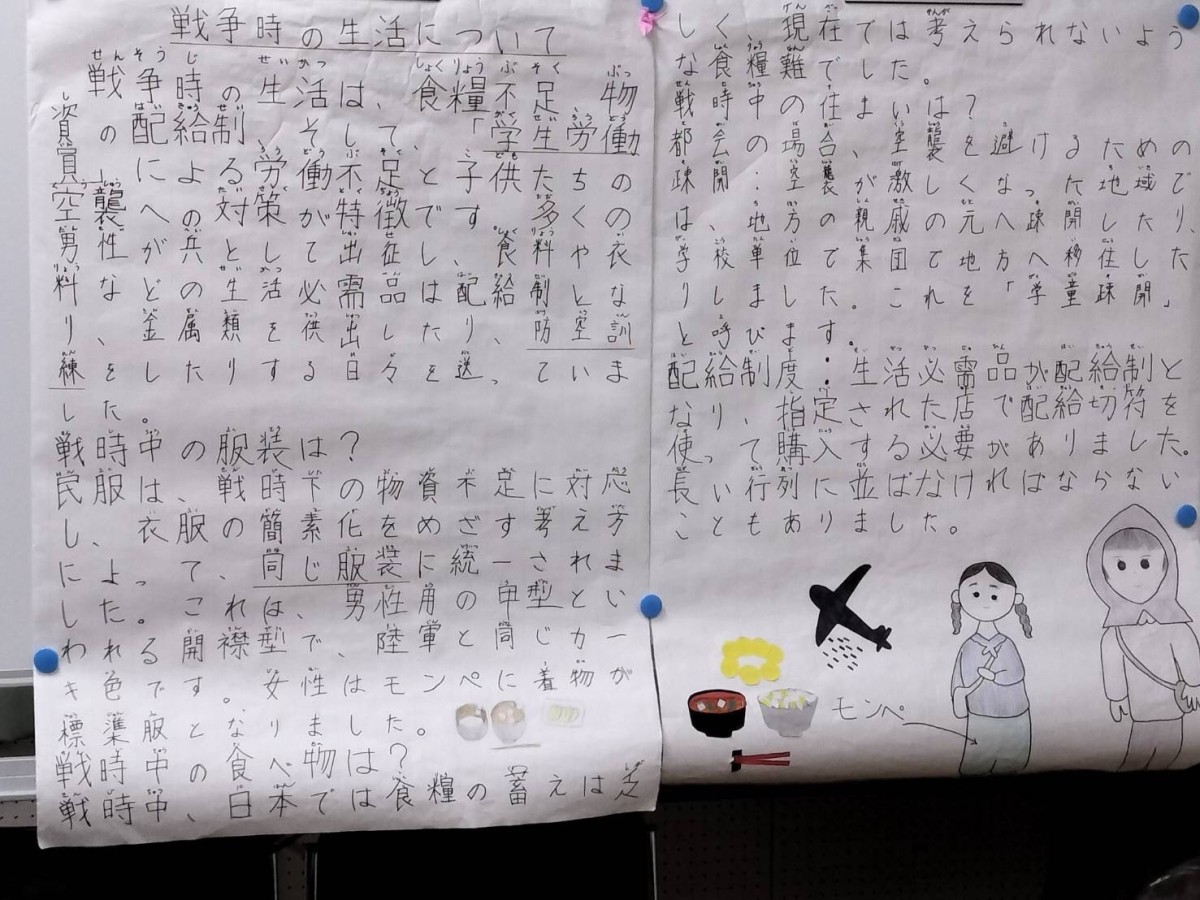 戦争時の生活について
戦争時の生活は、食糧不足、物
資の配給制、そして、「学生労働
員」による労働不足と子供たちの
空襲への対策が特徴です。多くの
男性が兵として出征し、食料や衣
料などの生活必需品は配給制とな
り、釜属類を供出したり、防空訓
練をしたりする日々を送っていま
した。
戦時中の服装は?
民服は、戦時下の物資不足に対応
し、衣服の簡素化をめざす考え方
によって、同じ服装に統一されま
した。これは、男性用の甲型とい
わる開襟型で、陸軍と同じカー
キ色です。女性はモンペに着物が
標準服となりました。
戦時中の食べ物は?
戦時中、日本では食糧の蓄えは乏
しく現在では考えられないよう
な食糧難でした。
戦時中の住まいは?
都会の場合、空襲を避けるための
疎開‥空襲が激しくなった地域で
は、地方の親戚の元へ疎開したり、
学校単位で集団で地方へ移住した
りしました。これを「学童疎開」
と呼びます。
配給制度‥生活必需品が配給制と
なり、指定された店で配給切符を
使って購入する必要がありました。
長い行列に並ばなければならない
こともありました。
モンペ